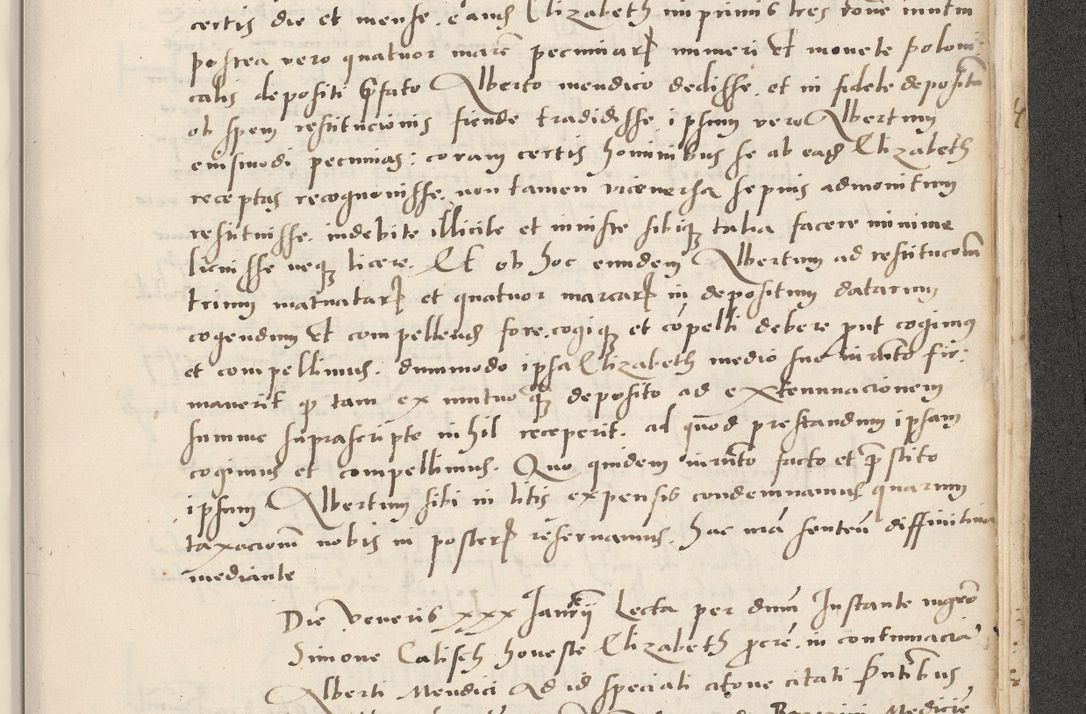 certis die et mense. eand Elizabeth in primis tres rone mutui
postea vero quatuor marc pecuniar numeri et monete poloni
calis depositi pfato Alberto mendico dedisse. et in fidele depositu
ob spem restitucionis fiende tradidisse. ipsum vero Albertum
eiusmodi pecunias: coram certis hominibus se ab ead Elizabeth
receptas recognovisse. non tamen viceversa sepius admonitum
restituisse. indebite illicite et iniuste sibiq talia facere minime
licuisse neq licere. Et ob hoc eundem Albertum ad restitucom
trium mutuatar et quatuor marcar in depositum datarum
cogendum et compellend fore. cogiq et copelli debere put cogimus
et compellimus. dummodo ipsa Elizabeth medio sue iurnto fir:
maverit q tam ex mutuo q deposito ad extenuacionem
summe suprascripte nihil receperit. ad quod prestandum ipsam
cogimus et compellimus. Quo quidem iurnto facto et pstito
ipsum Albertum sibi in litis expensis condemnamus quarum
taxacionem nobis in poster reservamus. hac nra senten diffinitiva
mediante
Die Veneris xxx Ianrii Lecta per dnm Instante mgro
Simone Calisch honeste Elizabeth pcre. in contumacia
Alberti Mendici Ad id speciali citone citati pntibus